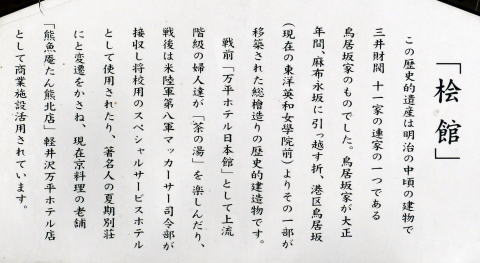 「桧館」
この歴史的遺産は明治の中頃の建物で
三井財閥 十一家の連家の一つである
鳥居坂家のものでした。鳥居坂家が大正
年間、麻布永坂に引っ越す折、港区鳥居坂
(現在の東洋英和女學院前)よりその一部が
移築された総檜造りの歴史的建造物です。
戦前「万平ホテル日本館」として上流
階級の婦人達が「茶の湯」を楽しんだり、
戦後は米陸軍第八軍マッカーサー司令部が
接収し将校用のスペシャルサービスホテル
として使用されたり、著名人の夏期別荘
にと変遷をかさね、現在京料理の老舗
「熊魚庵たん熊北店」軽井沢万平ホテル店
として商業施設活用されています。